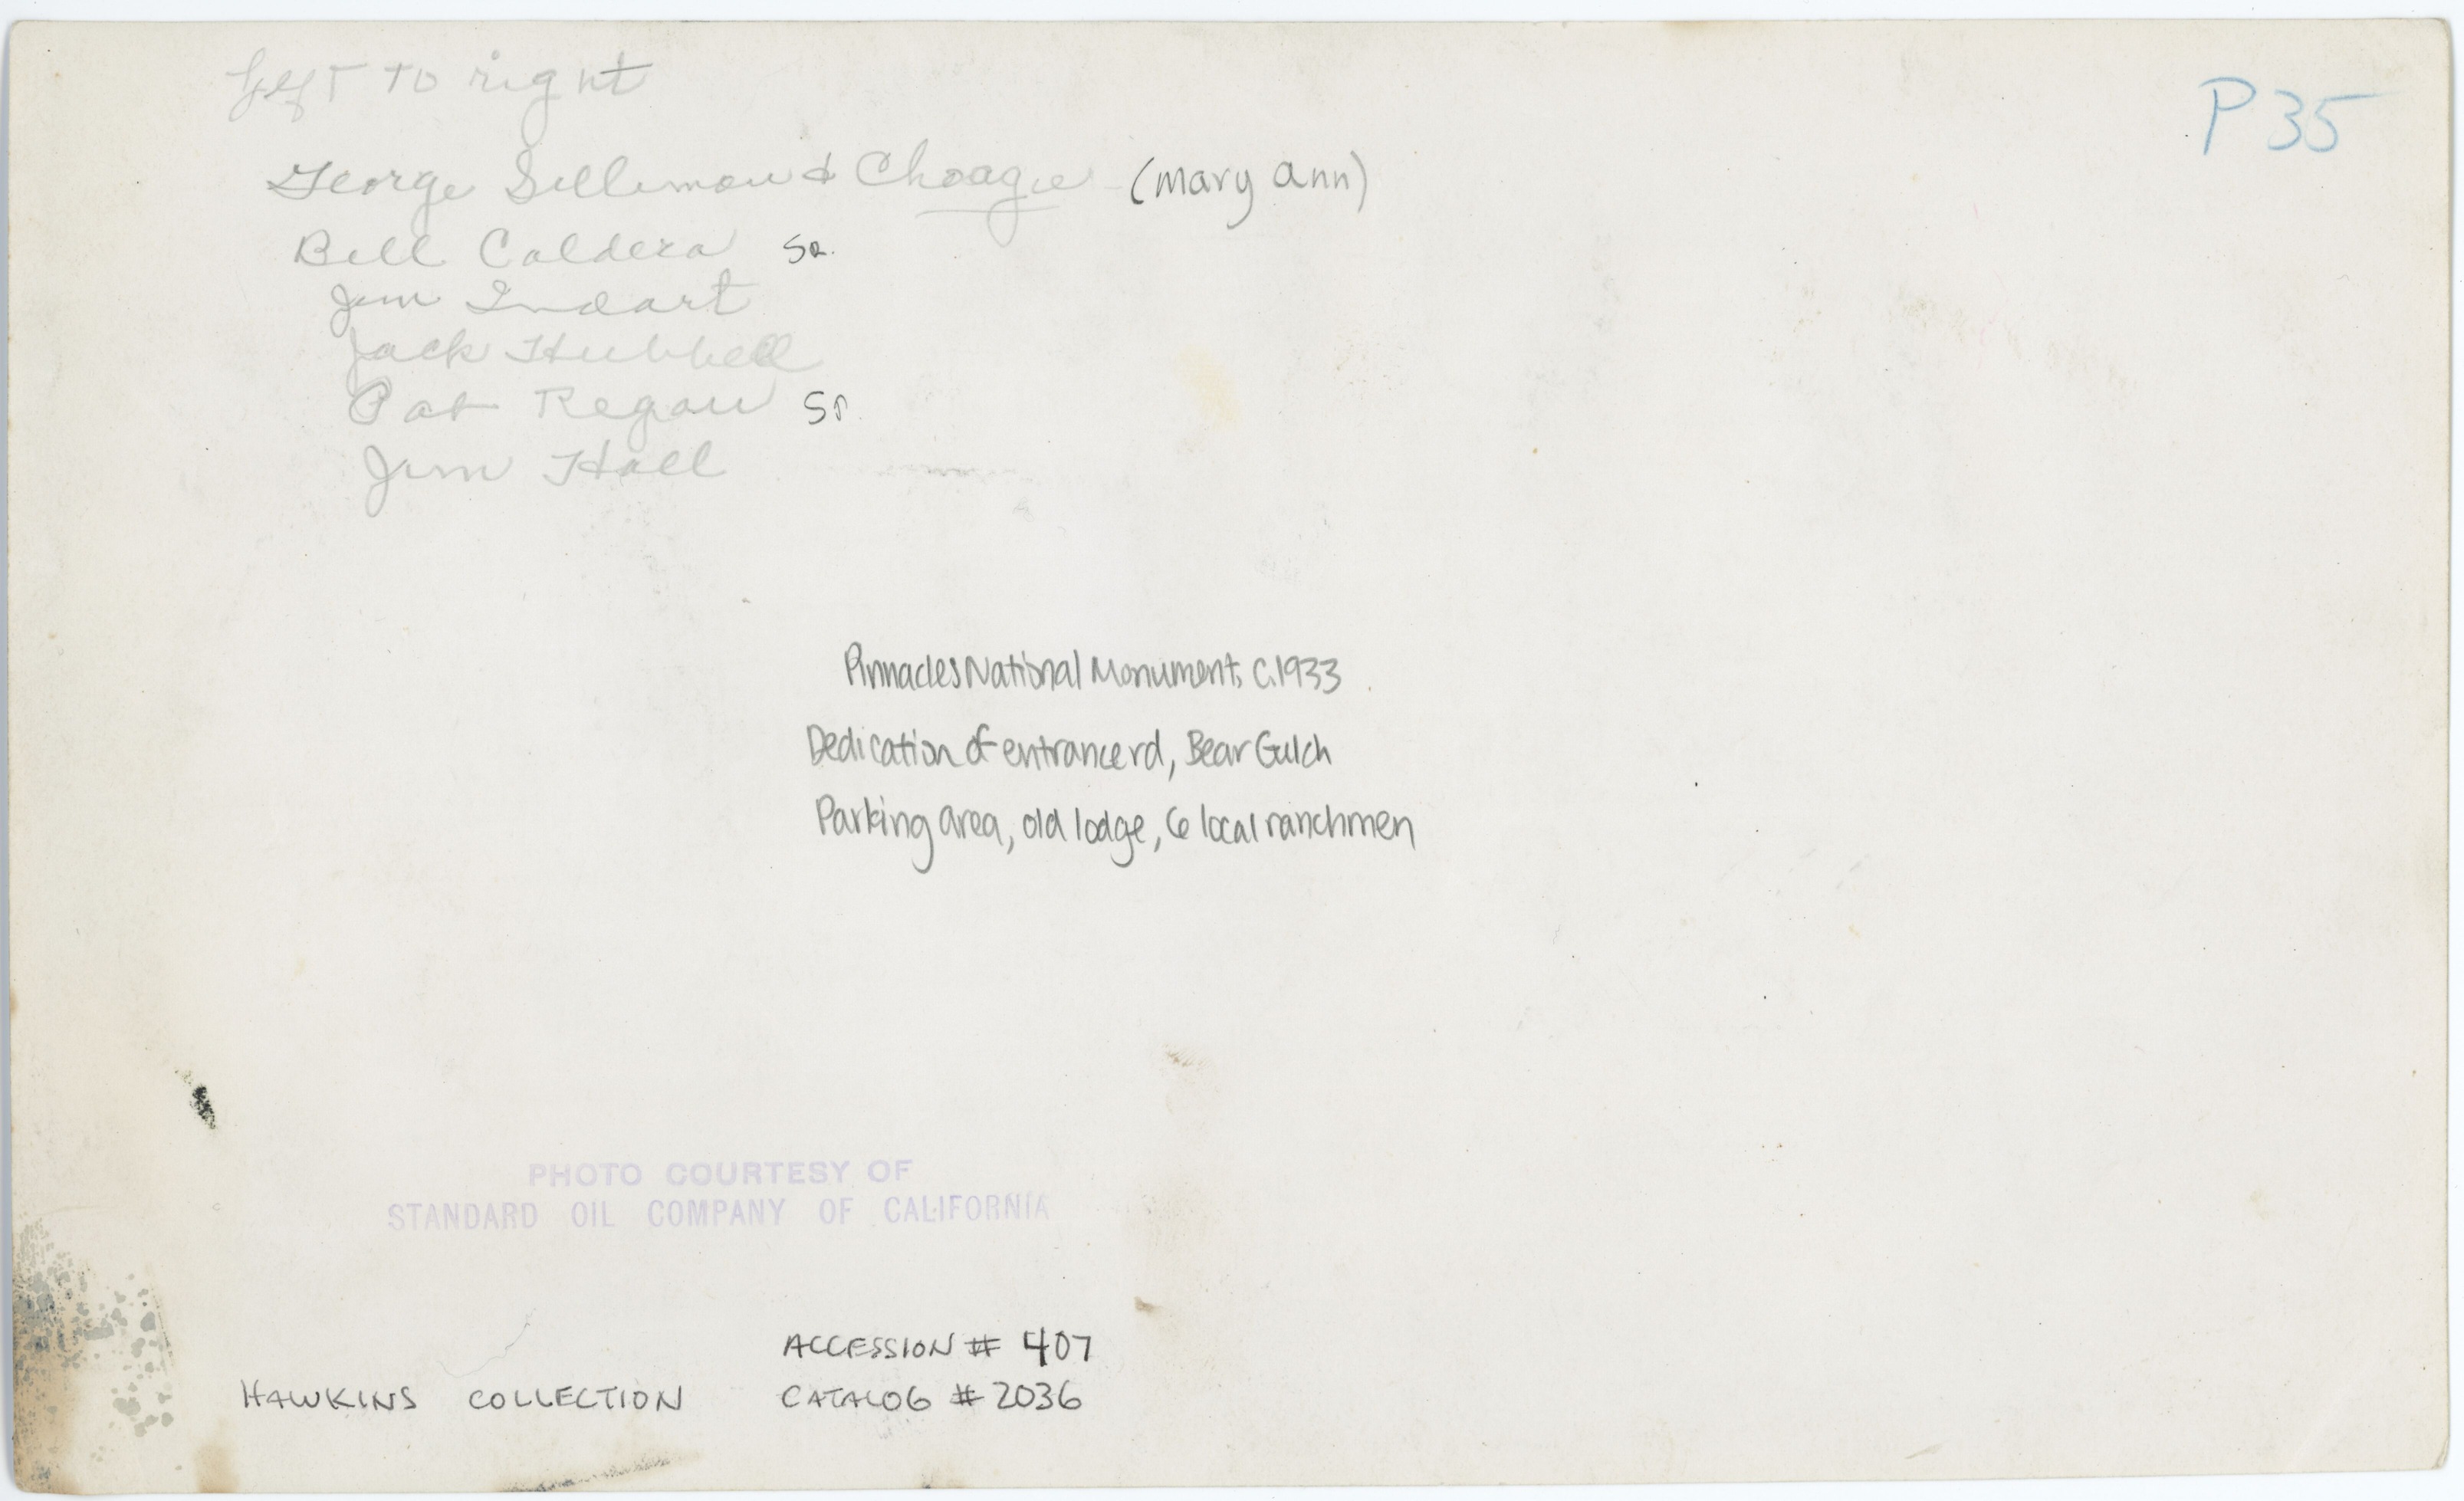 Left to right
P 35
George Silliman & Choagie (mary ann)
Bill Caldera Sr.
Jim Indart
Jack Hubbell
Pat Regan Sr.
Jim Hall
Pinnacles National Monument, C.1933
Dedication of entrance rd, Bear Gulch
Parking area, old lodge, 6 local ranchmen
PHOTO COURTESY OF
STANDARD OIL COMPANY OF CALIFORNIA
ACCESSION # 407
HAWKINS COLLECTION CATALOG # 2036